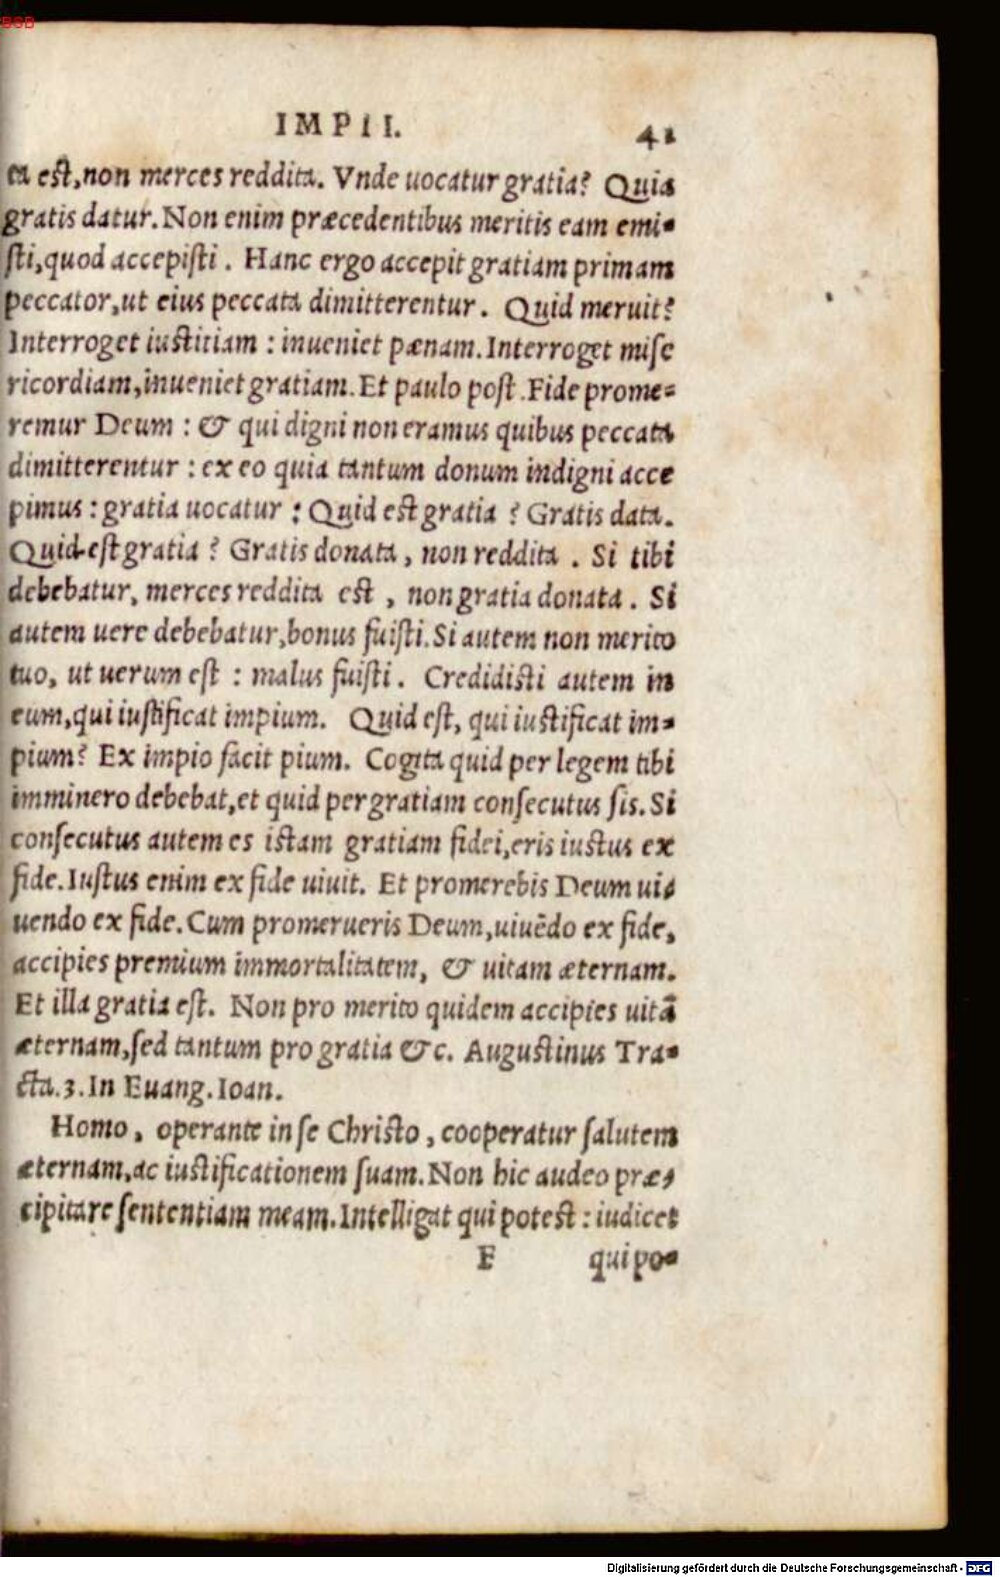 BSB
IMPII. 41
ta est, non merces reddita. Vnde uocatur gratia? Quia
gratis datur. Non enim præcedentibus meritis eam emi-
sti, quod accepisti. Hanc ergo accepit gratiam primam
peccator, ut eius peccata dimitterentur. Quid meruit?
Interroget iustitiam: inueniet pænam. Interroget mise
ricordiam, inueniet gratiam. Et paulo post. Fide prome-
remur Deum: & qui digni non eramus quibus peccata
dimitterentur: ex eo quia tantum donum indigni acce
pimus: gratia uocatur: Quid est gratia? Gratis data.
Quid est gratia? Gratis donata, non reddita. Si tibi
debebatur, merces reddita est, non gratia donata. Si
autem uere debebatur, bonus fuisti. Si autem non merito
tuo, ut uerum est: malus fuisti. Credidisti autem in
eum, qui iustificat impium. Quid est, qui iustificat im-
pium? Ex impio facit pium. Cogita quid per legem tibi
imminero debebat, et quid per gratiam consecutus sis. Si
consecutus autem es istam gratiam fidei, eris iustus ex
fide. Iustus enim ex fide uiuit. Et promerebis Deum ui-
uendo ex fide. Cum promerueris Deum, uiuēdo ex fide,
accipies premium immortalitatem, & uitam æternam.
Et illa gratia est. Non pro merito quidem accipies uitā
æternam, sed tantum pro gratia &c. Augustinus Tra-
cta. 3. In Euang. Ioan.
Homo, operante in se Christo, cooperatur salutem
æternam, ac iustificationem suam. Non hic audeo præ-
cipitare sententiam meam. Intelligat qui potest: iudicet
F qui po-
Digitalisierung gefördert durch die Deutsche Forschungsgemeinschaft - DFG